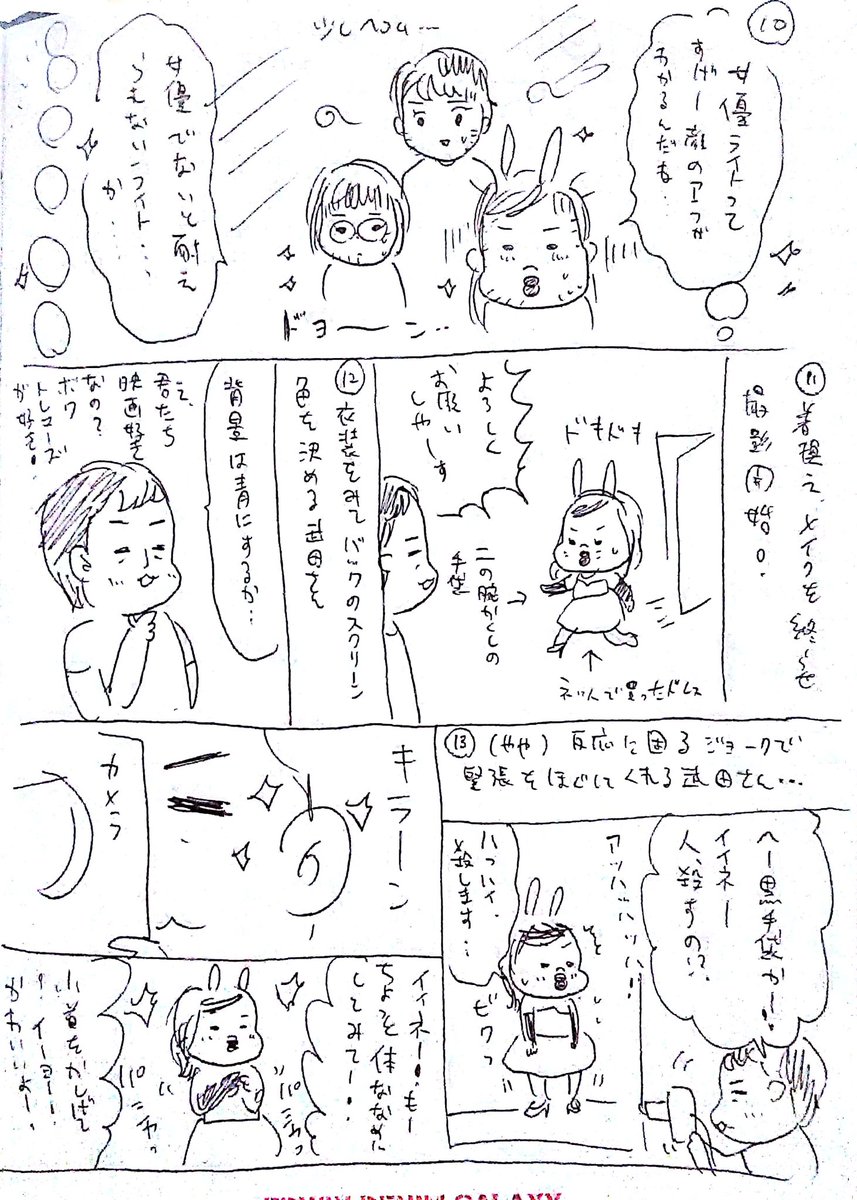 10
女優ライトって
すげー顔のアラが
わかるんだね…
少しヘコム…
女優でないと耐え
られないライト…
か…
ドヨーーン…
11 着換え、メイクを終らせ
撮影開始〇.
ドキドキ
よろしく
お願い
しやーす
二の腕かくしの
手袋
ネットで買ったドレス
12 衣装をみてバックのスクリーン
色を決める武田さん
背景は青にするか…
え、
君たち
映画好き
なの?
ボク
トレマーズ
が好き!
13 (やや)反応に困るジョークで
緊張をほぐしてくれる武田さん…
へー黒手袋かー!
イイネー
人、殺すの?
アッハッハッハ!
ハッハイ、
殺します…
ビクっ
キラーン
カメラ
イイネー!もー
ちょっと体ななめに
してみてー!
パシャっ
パシャっ
小首をかしげて
!イーヨー!
かわいいよー!